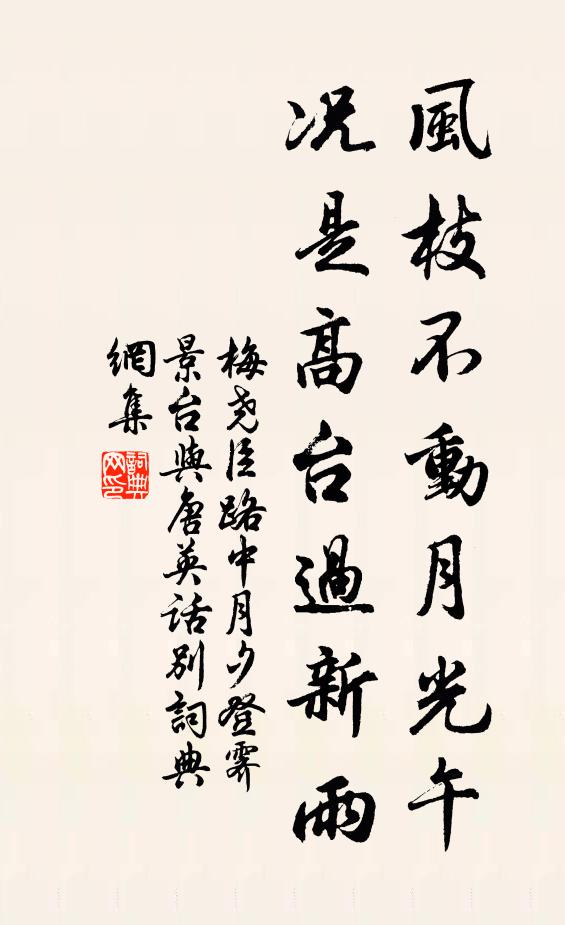 風枝不動月光午
况是高台過新雨
梅尧臣路中月夕登霽
景台與唐英話別詞典
網集
詞典
网印